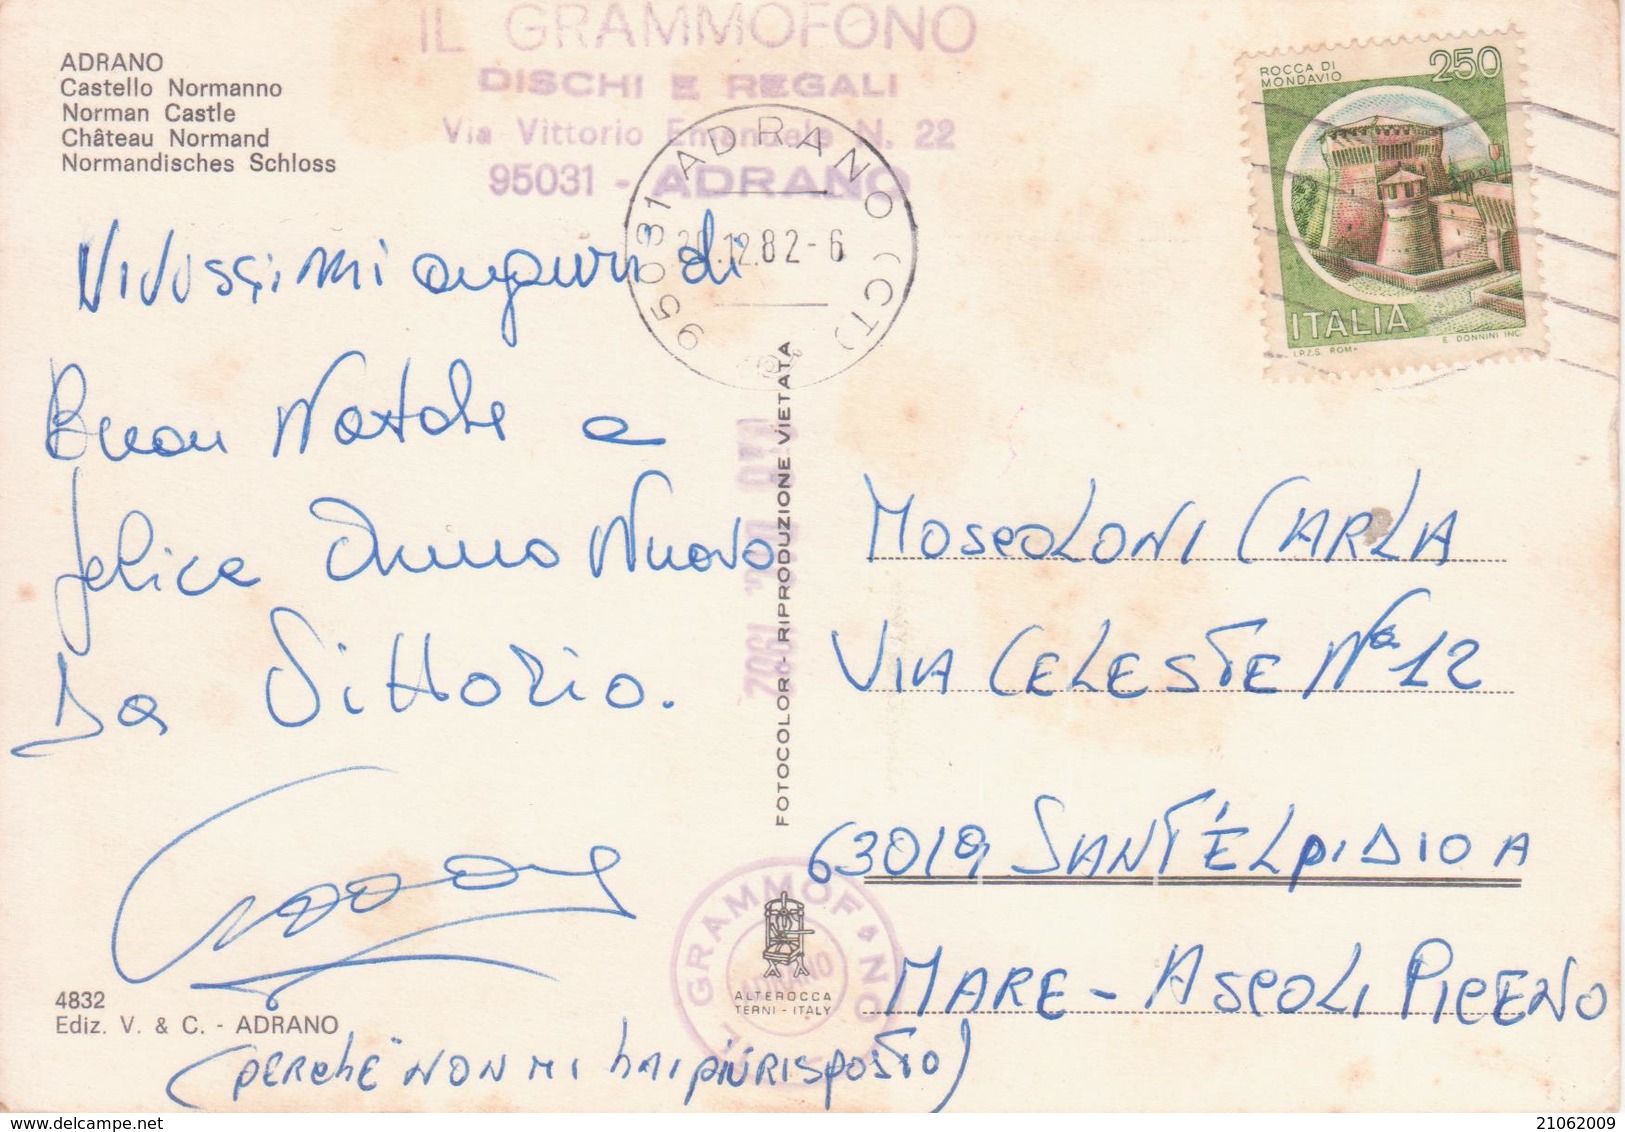 ADRANO
Castello Normanno
Norman Castle
Château Normand
Normandisches Schloss
IL GRAMMOFONO
DISCHI E REGALI
Via Vittorio Emanuele N. 22
95031 - ADRANO
95031 ADRANO (CT)
.12.82-6
ROCCA DI
MONDAVIO
250
ITALIA
I.P.Z.S. ROMA
E. DONNINI INC.
Vivissimi auguri di
Buon Natale e
felice Anno Nuovo
Da Vittorio.
(PERCHE' NON MI HAI PIÙ RISPOSTO)
4832
Ediz. V. & C. - ADRANO
FOTOCOLOR - RIPRODUZIONE VIETATA
1982
GRAMMOFONO
ADRANO
ALTEROCCA
TERNI - ITALY
MOSCOLONI CARLA
VIA CELESTE Nº 12
63019 SANT'ELPIDIO A
MARE - ASCOLI PICENO
21062009